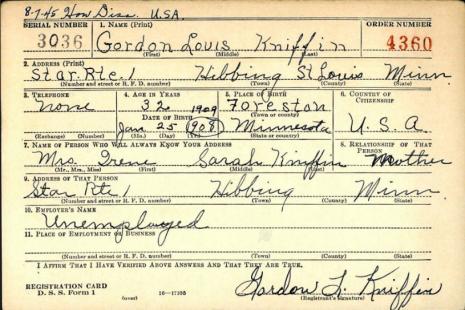 8-7-45 Hon Disc. U.S.A.
SERIAL NUMBER 1. NAME (Print) ORDER NUMBER
3036 Gordon Louis Kniffin 4360
(First) (Middle) (Last)
2. ADDRESS (Print)
Star. Rte. 1 Hibbing St Louis Minn.
(Number and street or R. F. D. number) (Town) (County) (State)
3. TELEPHONE 4. AGE IN YEARS 5. PLACE OF BIRTH 6. COUNTRY OF CITIZENSHIP
none 32 1909 Foreston
DATE OF BIRTH (Town or county)
Jan 25 1908 Minnesota U. S. A
(Exchange) (Number) (Mo.) (Day) (Yr.) (State or country)
7. NAME OF PERSON WHO WILL ALWAYS KNOW YOUR ADDRESS 8. RELATIONSHIP OF THAT PERSON
Mrs. Irene Sarah Kniffin Mother
(Mr., Mrs., Miss) (First) (Middle) (Last)
9. ADDRESS OF THAT PERSON
Star Rte. 1 Hibbing Minn
(Number and street or R. F. D. number) (Town) (County) (State)
10. EMPLOYER'S NAME
Unemployed
11. PLACE OF EMPLOYMENT OR BUSINESS
(Number and street or R. F. D. number) (Town) (County) (State)
I AFFIRM THAT I HAVE VERIFIED ABOVE ANSWERS AND THAT THEY ARE TRUE.
REGISTRATION CARD
D. S. S. Form 1 (over) 16—17105 Gordon L. Kniffin
(Registrant's signature)